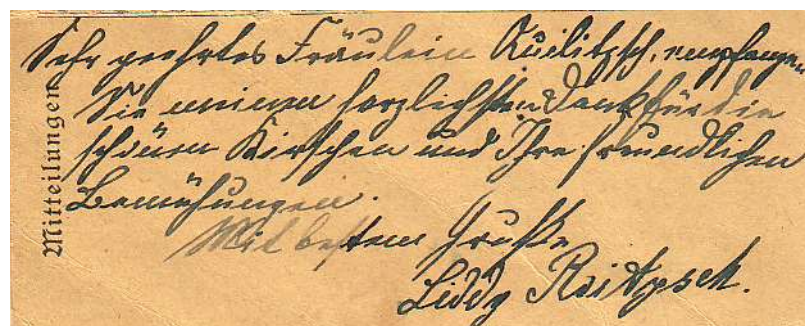 Sehr geehrtes Fräulein Quilitzsch, empfangen
Sie meinen herzlichsten Dank für die
schönen Kirschen und Ihre freundlichen
Bemühungen.
Mit bestem Gruße
Liddy
Mitteilungen